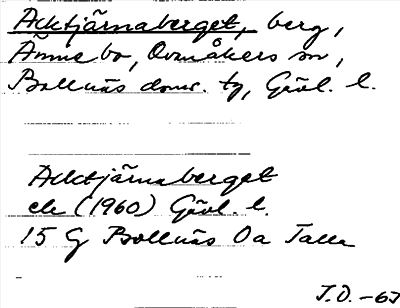 Acktjärnaberget, berg,
Ämnebo, Ovanåkers sn,
Bollnäs doms. tg, Gävl. l.
Acktjärnaberget
ek (1960) Gävl. l.
15 G Bollnäs 0a Talle
J.O. -67